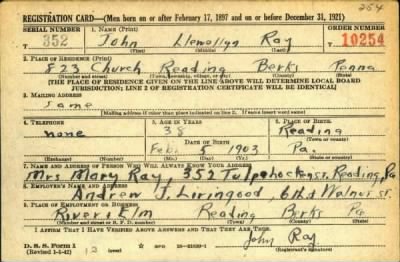 254
REGISTRATION CARD—(Men born on or after February 17, 1897 and on or before December 31, 1921)
SERIAL NUMBER 1. NAME (Print) ORDER NUMBER
T 352 John Llewellyn Ray T 10254
(First) (Middle) (Last)
2. PLACE OF RESIDENCE (Print)
823 Church Reading Berks Penna
(Number and street) (Town, township, village, or city) (County) (State)
[THE PLACE OF RESIDENCE GIVEN ON THE LINE ABOVE WILL DETERMINE LOCAL BOARD
JURISDICTION; LINE 2 OF REGISTRATION CERTIFICATE WILL BE IDENTICAL]
3. MAILING ADDRESS
Same
[Mailing address if other than place indicated on line 2. If same insert word same]
4. TELEPHONE 5. AGE IN YEARS 6. PLACE OF BIRTH
none 38 Reading
DATE OF BIRTH (Town or county)
Feb. 5 1903 Pa.
(Exchange) (Number) (Mo.) (Day) (Yr.) (State or country)
7. NAME AND ADDRESS OF PERSON WHO WILL ALWAYS KNOW YOUR ADDRESS
Mrs Mary Ray, 352 Tulpehocken st. Reading, Pa
8. EMPLOYER'S NAME AND ADDRESS
Andrew J. Livingood, 6th & Walnut st.
9. PLACE OF EMPLOYMENT OR BUSINESS
River & Elm Reading Berks Pa
(Number and street or R. F. D. number) (Town) (County) (State)
I AFFIRM THAT I HAVE VERIFIED ABOVE ANSWERS AND THAT THEY ARE TRUE.
John Ray
D. S. S. Form 1
(Revised 1-1-42) (over) (Registrant's signature)
12